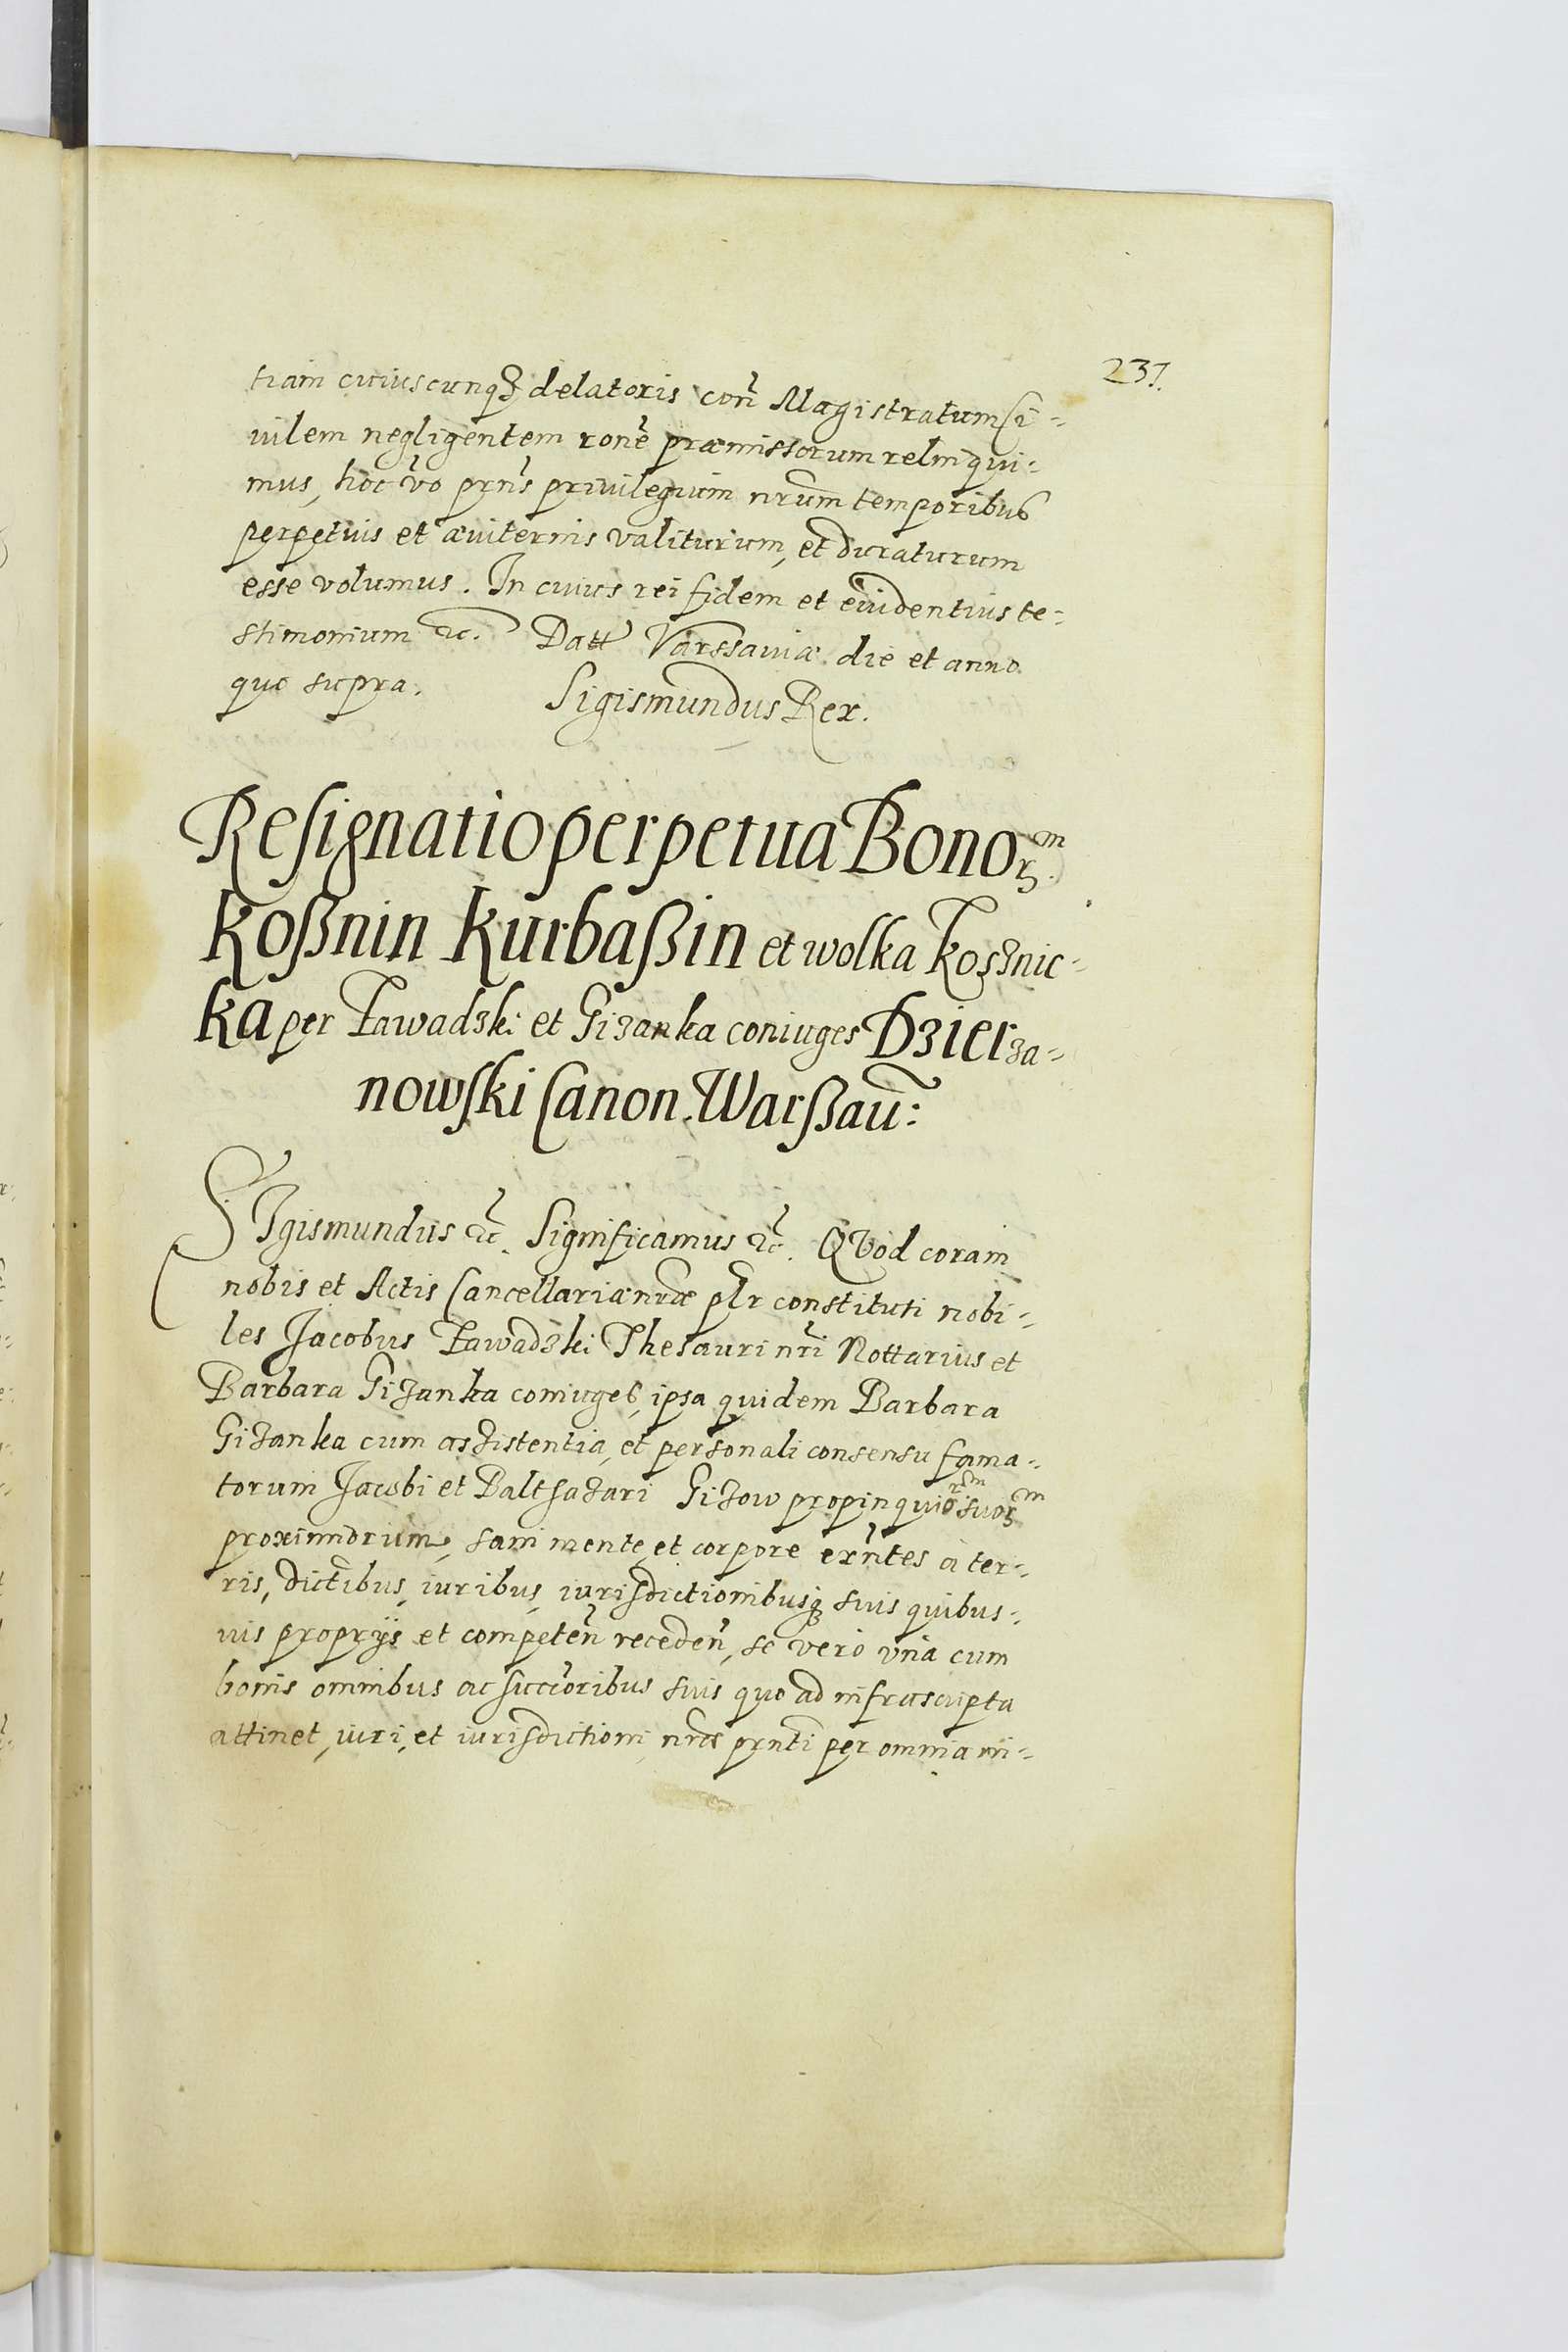 237.
tiam cuiuscunqꝫ delatoris coñ Magistratum Ci-
uilem negligentem rone præmissorum relinqui-
mus, hoc vo pñs priuilegium nrum temporibus
perpetuis et æuiternis valiturum, et duraturum
esse volumus. In cuius rei fidem et euidentius te-
stimonium etc. Datt Varssauiæ die et anno
quo supra. Sigismundus Rex.
Resignatio perpetua Bonoꝝm
Koßnin Kurbaßin et wolka Kosznic-
ka per Zawadzki et Gizanka coniuges Dzierza-
nowski Canon. Warßau:
SIgismundus etc. Significamus etc. QVod coram
nobis et Actis Cancellariæ nræ plr constituti nobi-
les Jacobus Zawadzki Thesauri nri Nottarius et
Barbara Gizanka coniuges, ipsa quidem Barbara
Gizanka cum assistentia, et personali consensu fama-
torum Jacobi et Baltsazari Gizow propinquiorum suoꝝm
proximiorum, sani mente, et corpore exñtes a ter-
ris, dictibus, iuribus, iurisdictionibusqꝫ suis quibus-
uis proprijs et competeñ recedeñ, se vero vna cum
bonis omnibus ac succoribus suis quo ad infrascripta
attinet, iuri, et iurisdictioni nræ pñti per omnia in-